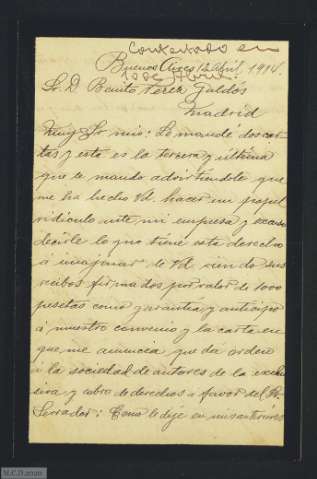 Contestado en
Buenos Aires 12 Abril, 1914.
Sr. D. Benito Perez Galdós
Madrid
Muy Sr. mio: Le mandé dos car-
tas y esta es la tercera y última
que le mando advirtiéndole que
me ha hecho Vd. hacer un papel
ridiculo ante mi empresa y excuso
decirle lo que tiene este derecho
á imajinar de Vd. viendo sus
recibos firmados por valor de 1000
pesetas como garantia y anticipo
á nuestro convenio y la carta en
que me anuncia que da orden
á la sociedad de autores de la exclu
siva y cobro de derechos á favor del Sr.
Serrador: Como le dije en mis anteriores